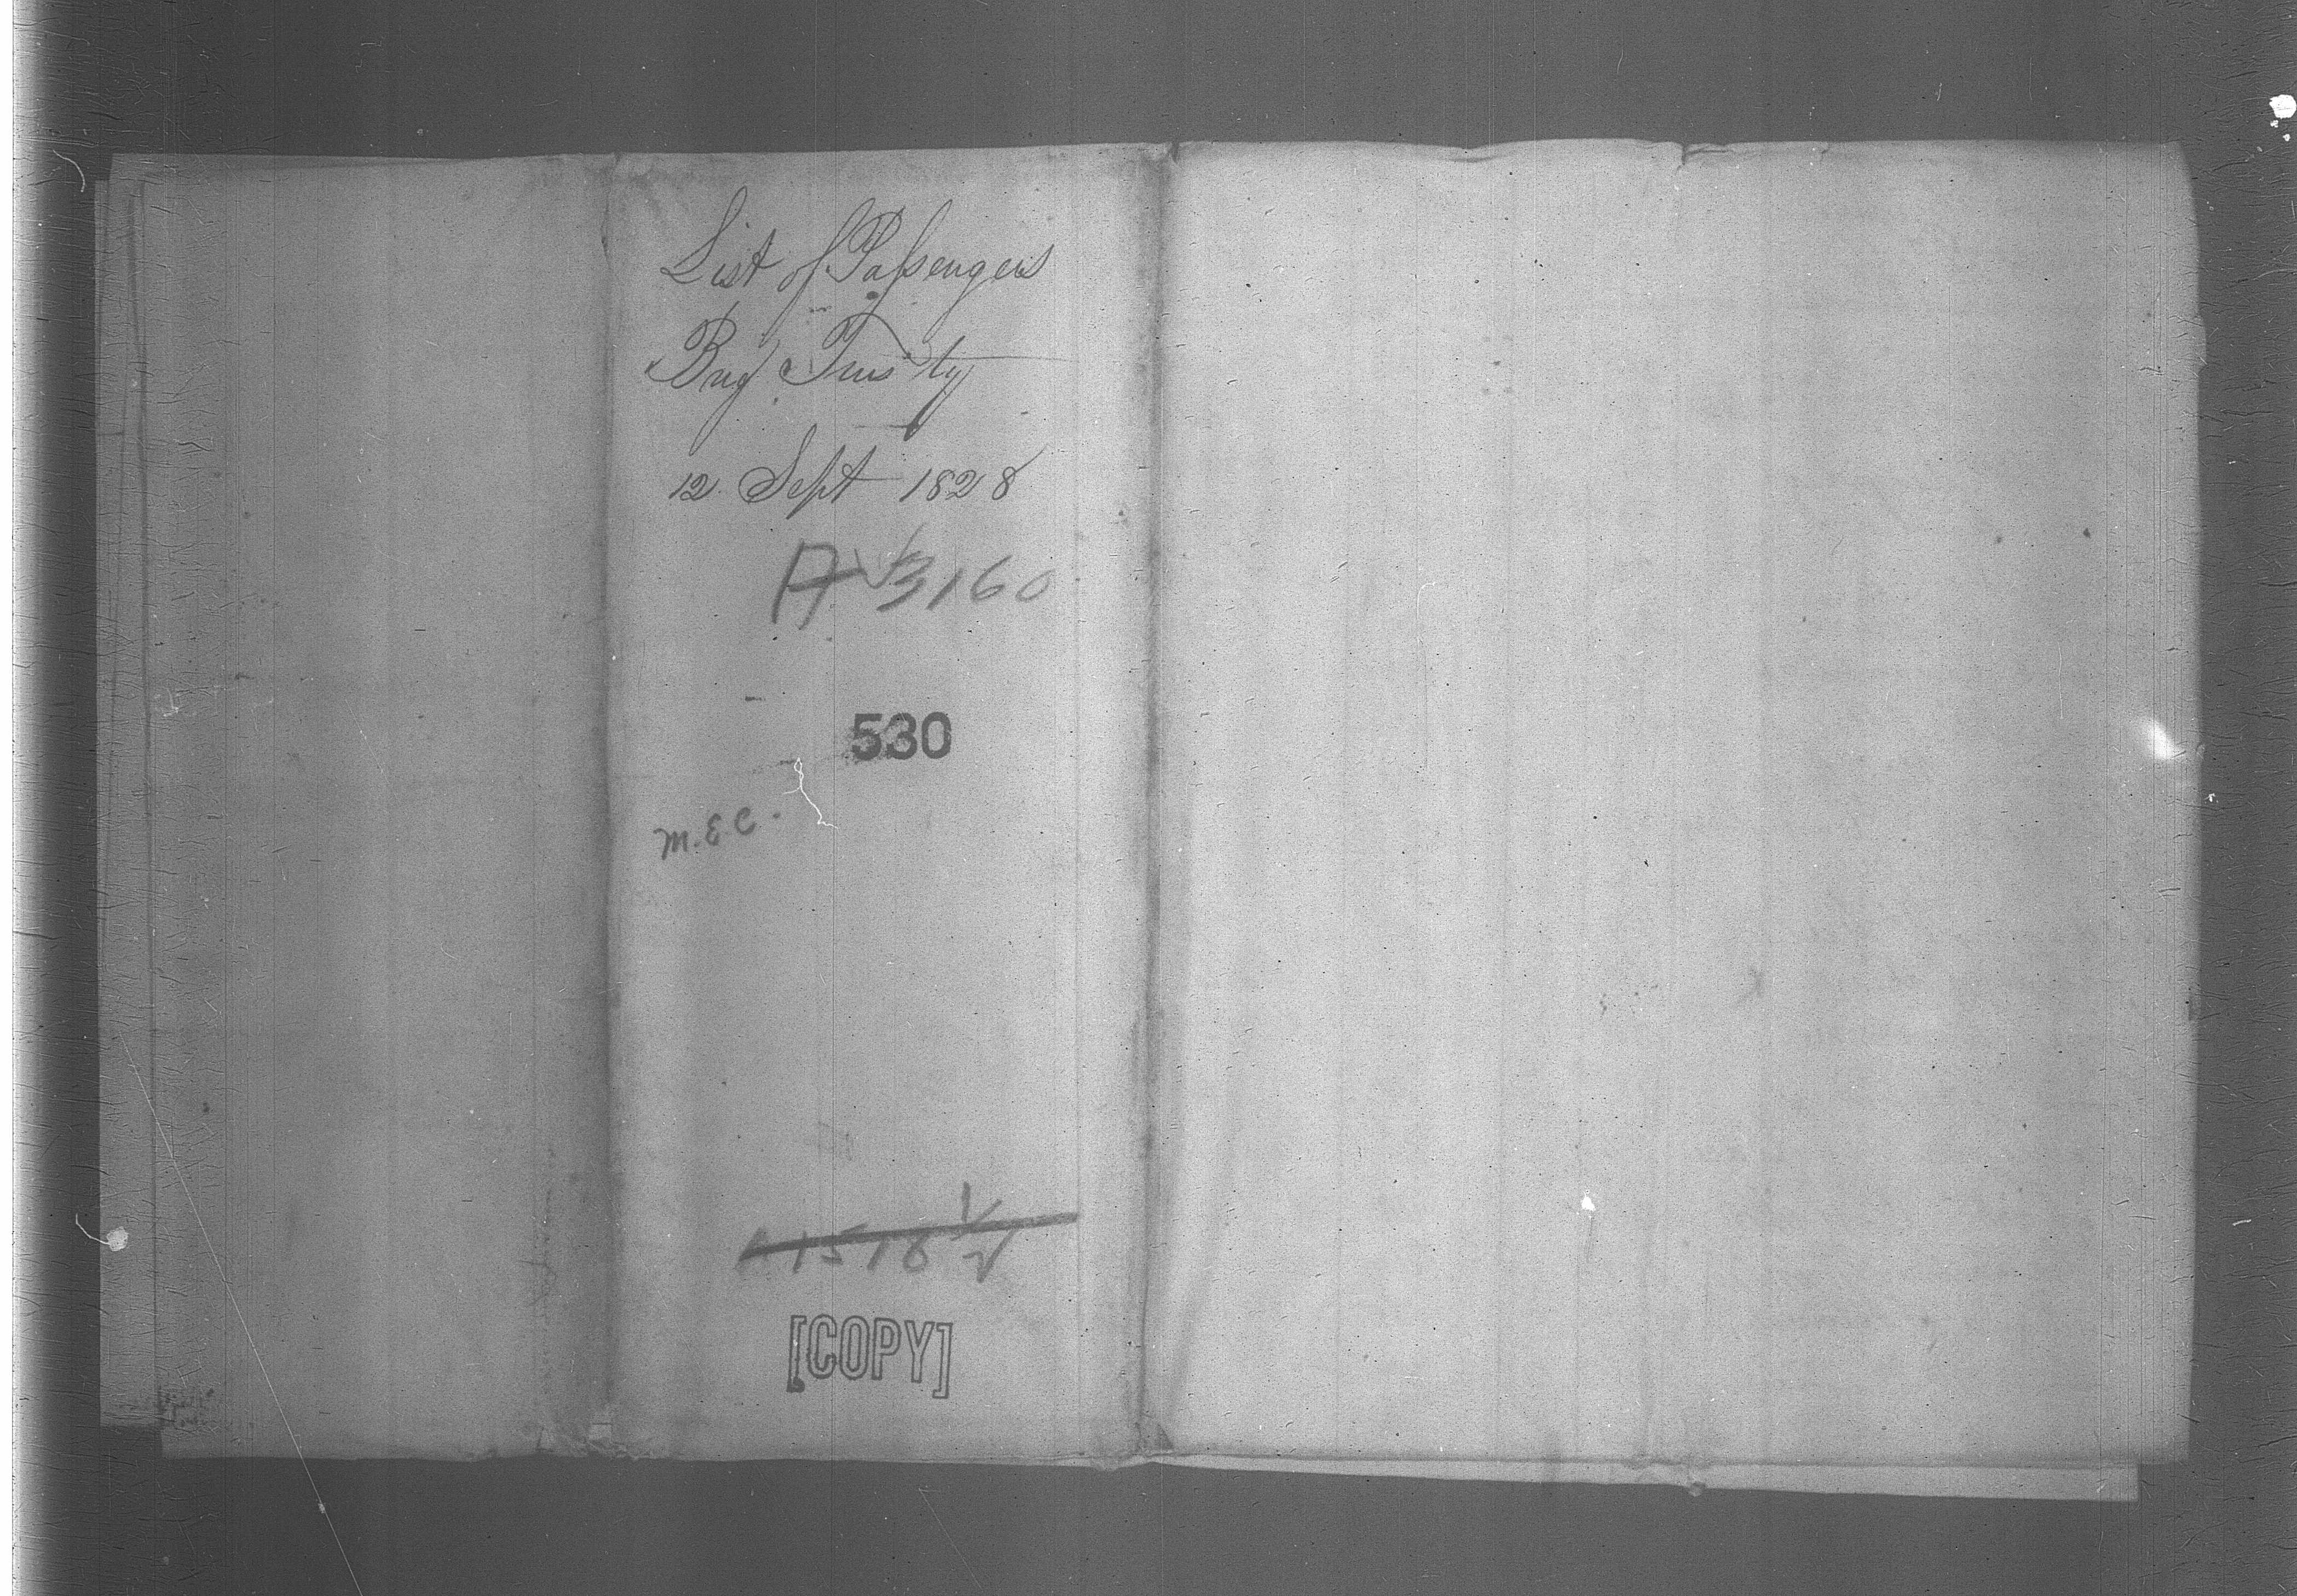 List of Passengers
Brig
12 Sept 1828
A 3160
530
M.E.C.
1518 1/2
[COPY]